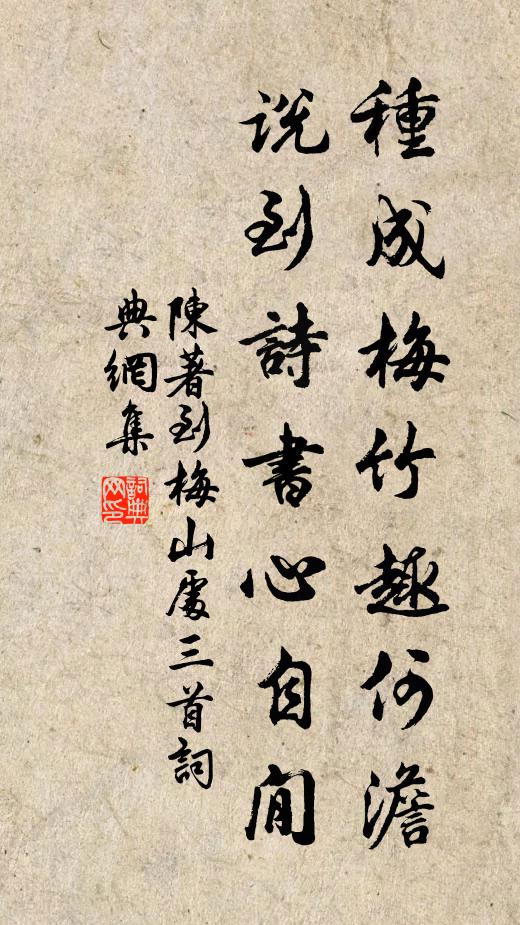 種成梅竹趣何澹
説到詩書心自閒
陳著到梅山處三首詞
典網集
詞典網印